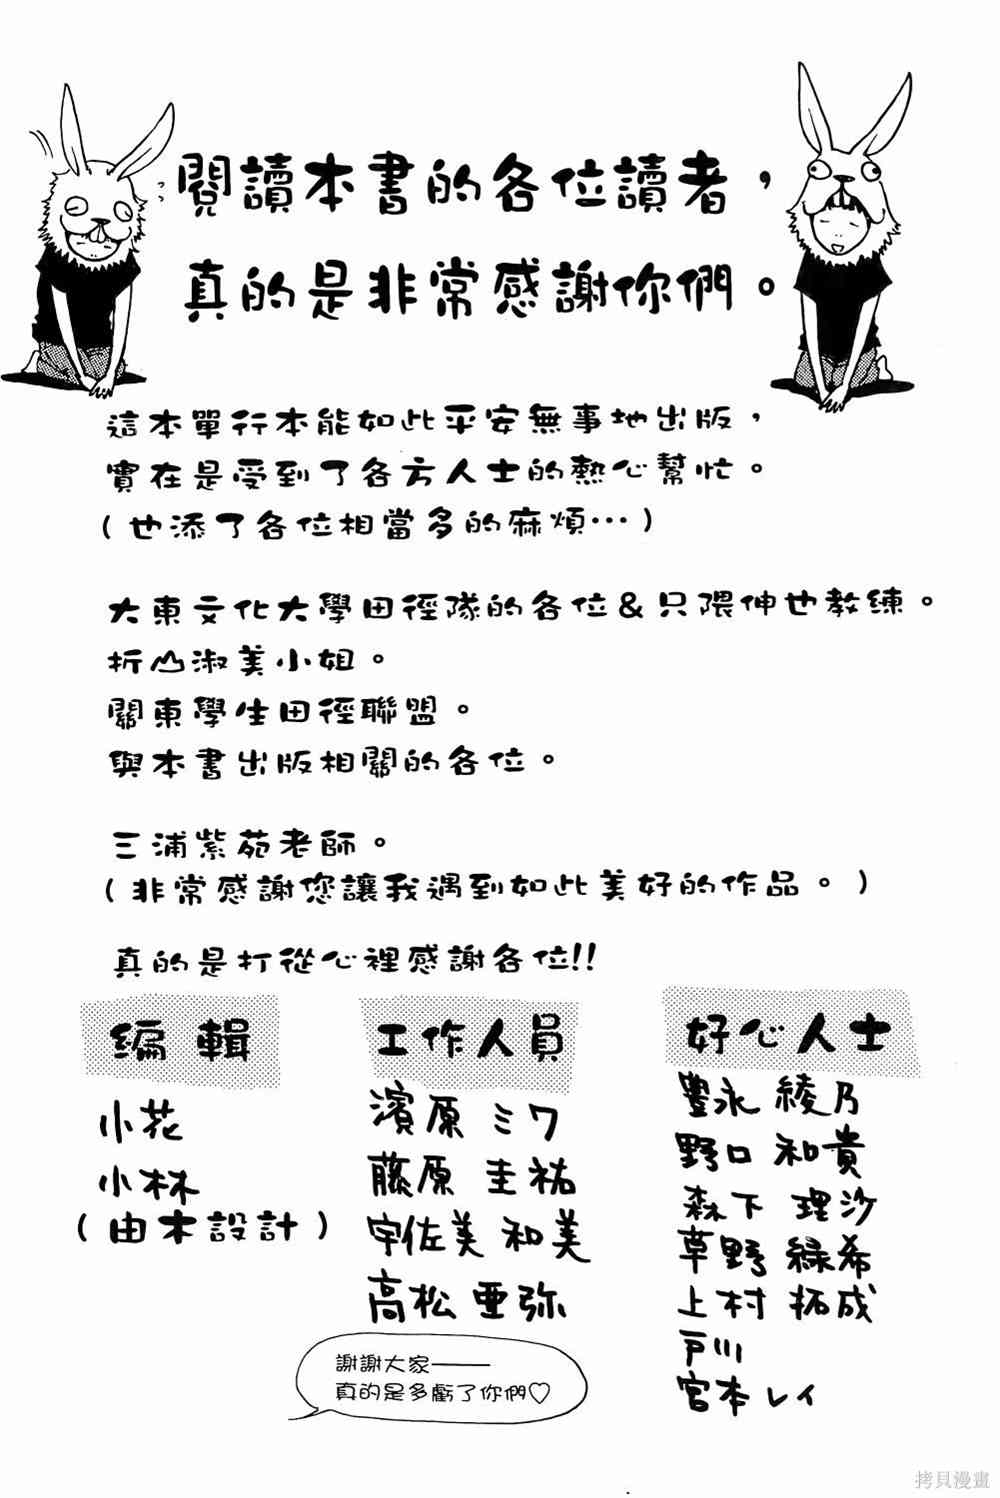 閱讀本書的各位讀者，
真的是非常感謝你們。
這本單行本能如此平安無事地出版，
實在是受到了各方人士的熱心幫忙。
（也添了各位相當多的麻煩…）
大東文化大學田徑隊的各位&只隈伸也教練。
折山淑美小姐。
關東學生田徑聯盟。
與本書出版相關的各位。
三浦紫苑老師。
（非常感謝您讓我遇到如此美好的作品。）
真的是打從心裡感謝各位!!
編輯
小花
小林
（由木設計）
工作人員
濱原 ミワ
藤原 圭祐
宇佐美 和美
高松 亜弥
好心人士
豐永 綾乃
野口 和貴
森下 理沙
草野 緑希
上村 拓成
戸川
宮本 レイ
謝謝大家——
真的是多虧了你們♡
拷貝漫畫